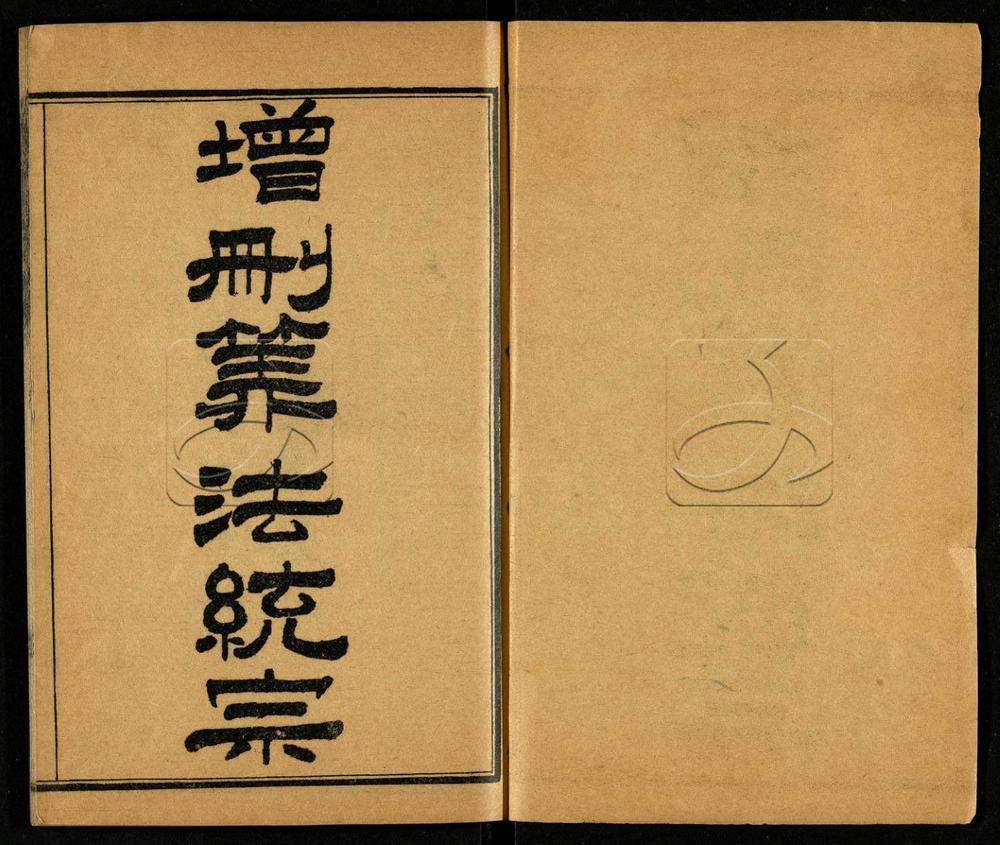 增刪筭法統宗